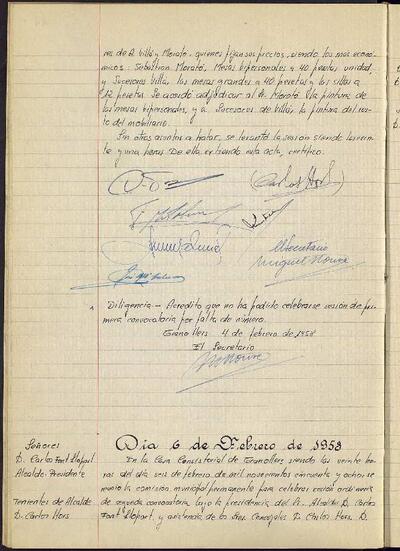 na de D. Villá y Morató, quienes fijan sus precios, siendo los mas econó-
micos: Sebastian Morató, Mesas bipersonales a 40 pesetas unidad,
y Sucesores Villá, las mesas grandes a 40 pesetas y las sillas a
12 pesetas. Se acordó adjudicar al Sr. Morató la pintura de
las mesas bipersonales, y a Sucesores de Villá, la pintura del res-
to del mobiliario.
Sin otros asuntos a tratar, se levantó la sesión siendo las vein-
te y una horas. De ella, extiendo esta acta, certifico.
Carlos Hors
El Secretario
Miguel Moure
Diligencia.- Acredito que no ha podido celebrarse sesión de pri-
mera convocatoria por falta de número.
Granollers 4 de febrero de 1958
El Secretario
Señores
Dia 6 de Febrero de 1958
D. Carlos Font Llopart
En la Casa Consistorial de Granollers siendo las veinte ho-
Alcalde-Presidente
ras del día seis de febrero de mil novecientos cincuenta y ocho, se
reunió la comisión municipal permanente para celebrar sesión ordinaria
Tenientes de Alcalde
de segunda convocatoria bajo la presidencia del Sr. Alcalde D. Carlos
D. Carlos Hors
Font Llopart, y asistencia de los Sres. Concejales D. Carlos Hors, D.